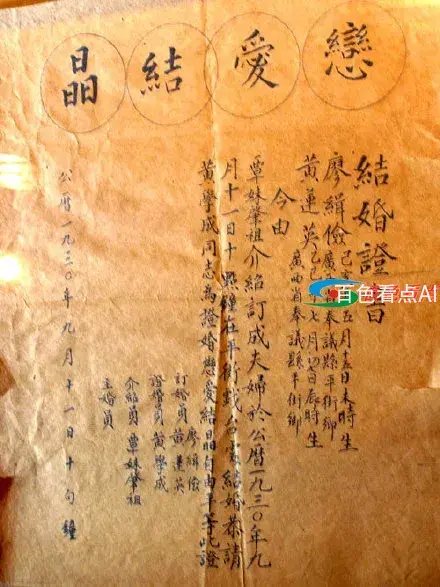 戀愛結晶
結婚證書
廖緝儉 五月 日未時生
奉議縣平街鄉
黃蓮英 七月 日辰時生
廣西省奉議縣平街鄉
今由
覃妹肇祖介紹訂成夫婦於公曆一九三〇年九
月十一日十點鐘在平街戲台 結婚恭請
黃學成同志為證婚戀愛結晶自由平等此證
廖緝儉
訂婚員 黃蓮英
證婚員 黃學成
介紹員 覃妹肇祖
主婚員
公曆一九三〇年九月十一日十句鐘
百色看点AI